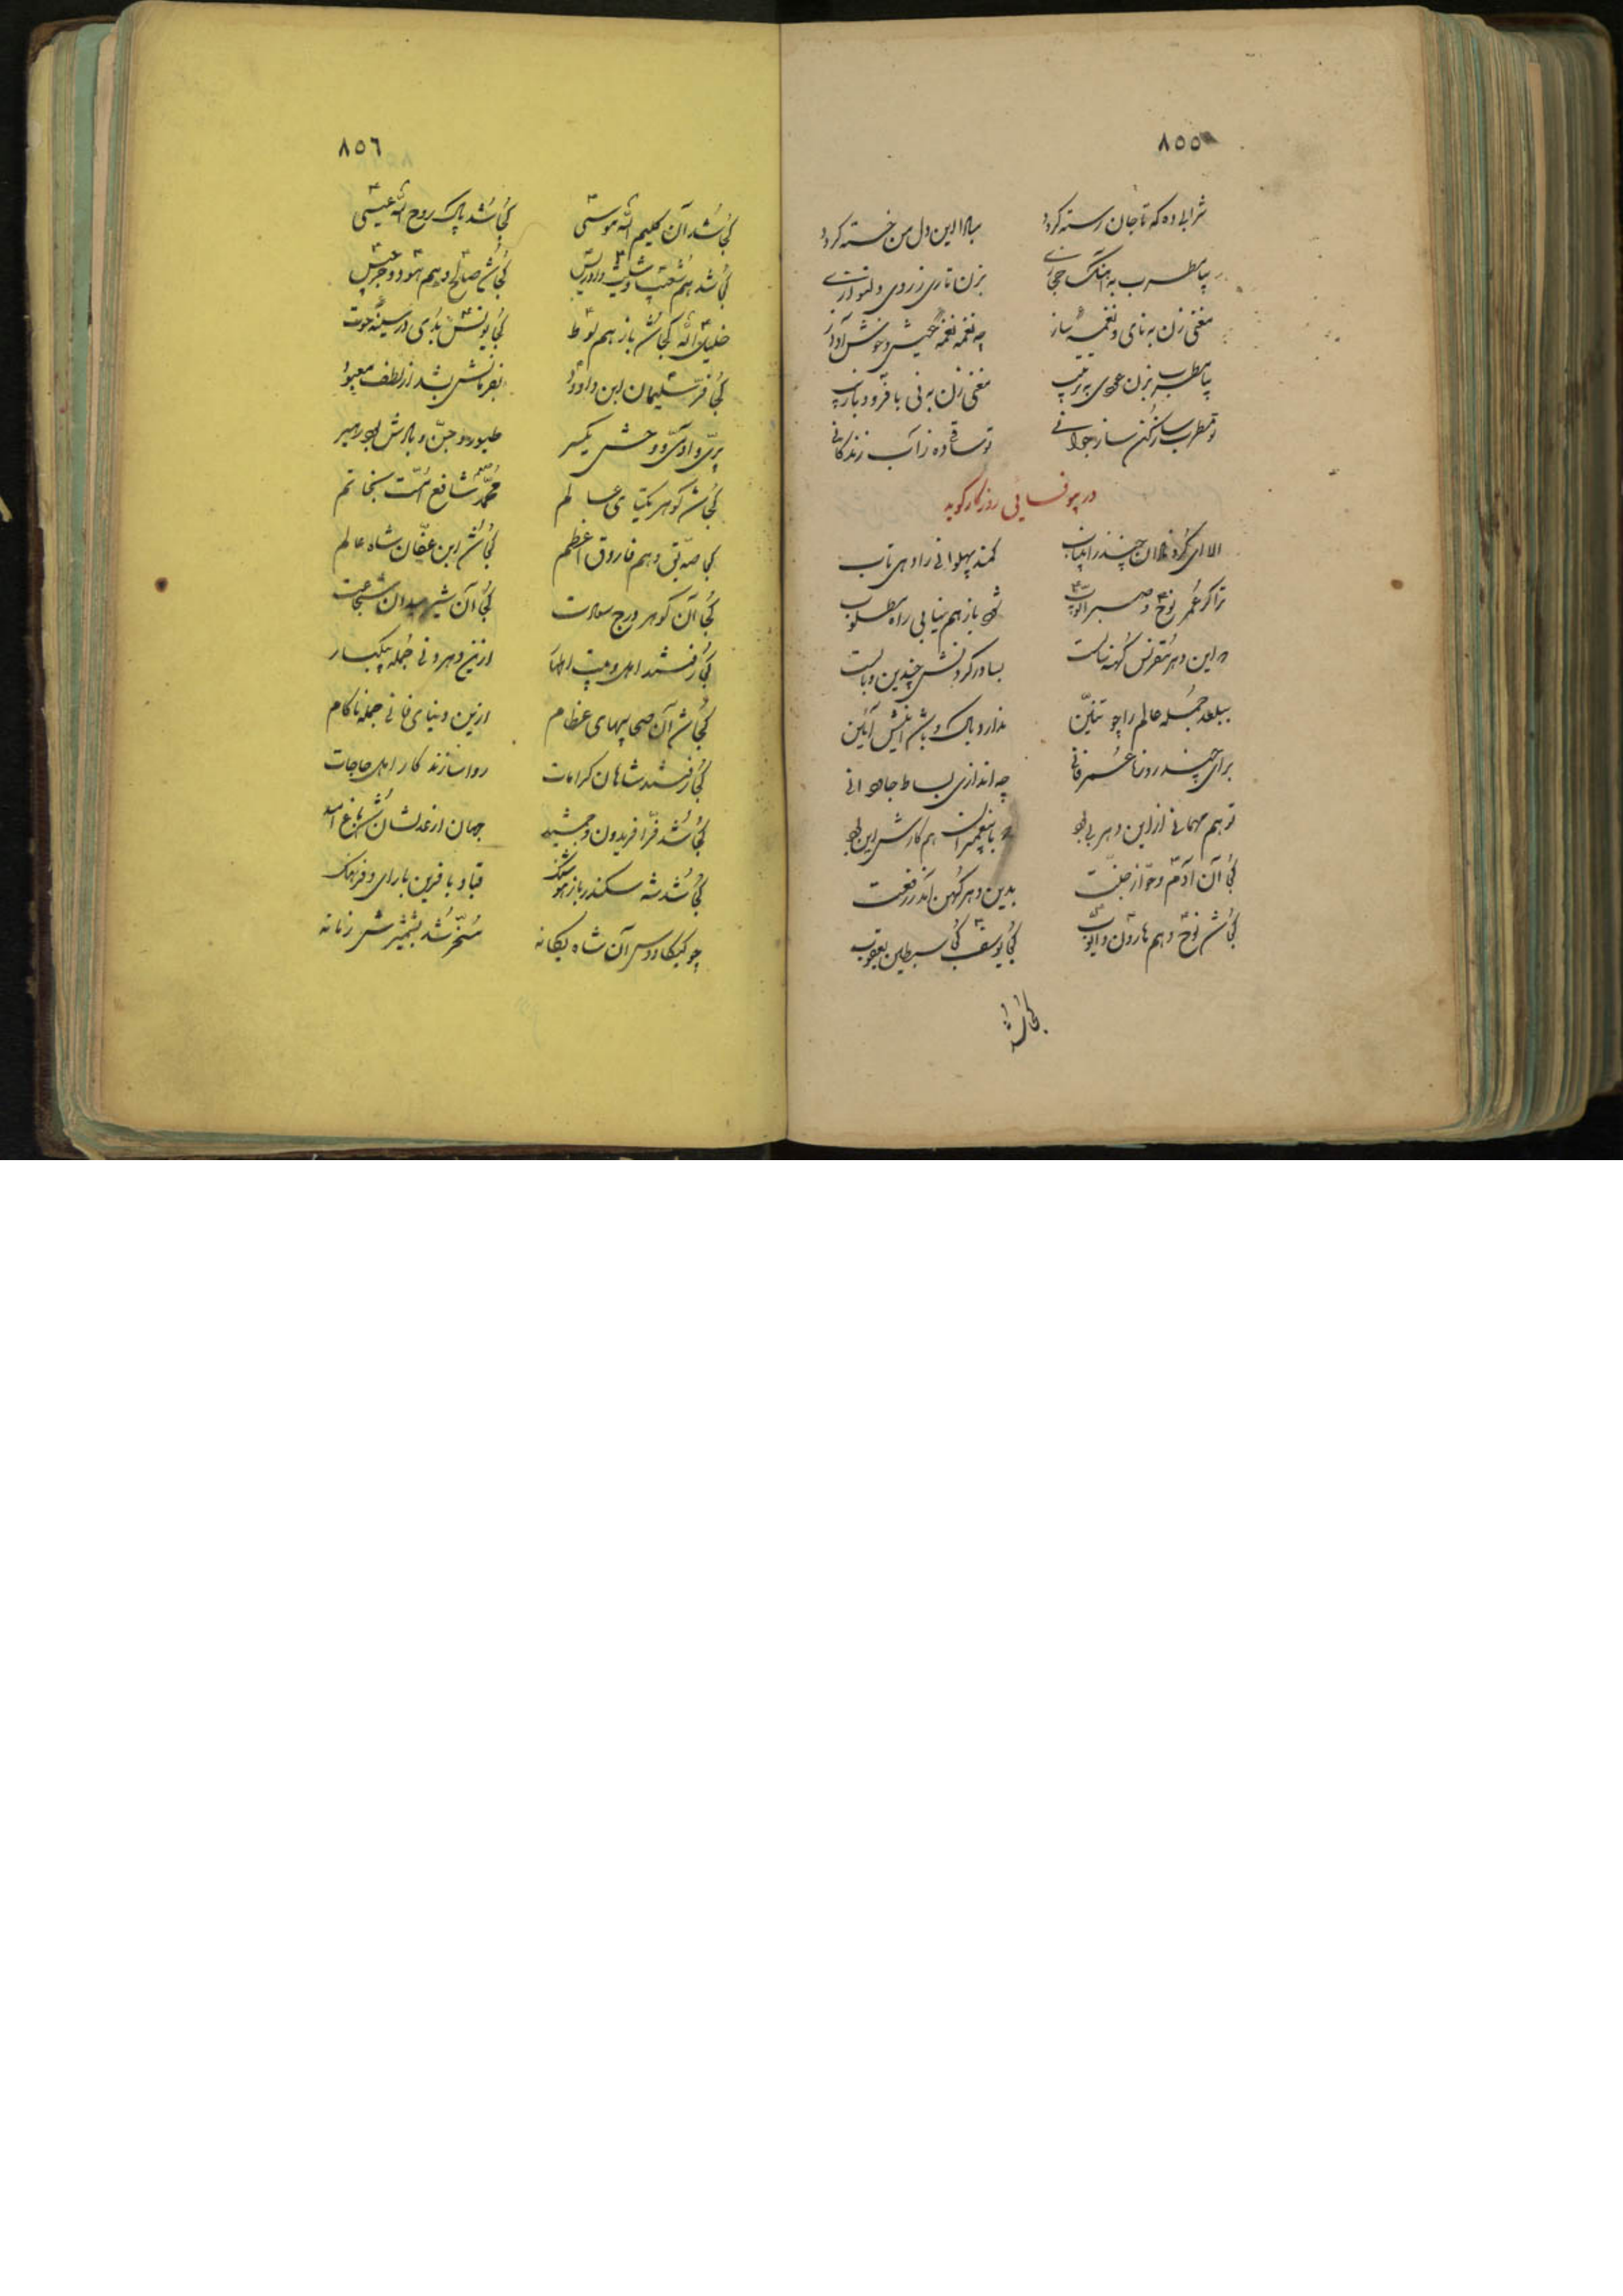 ٨٥٥
شرابی ده که تا جان رسته گردد مبادا این دل من خسته گردد
بیا مطرب به آهنگ حجازی بزن تاری ز روی دلنوازی
مغنی زن به نای و نغمه ساز چه نغمه نغمه خوش آواز
بیا مطرب بزن عودی به ترتیب مغنی زن به نی با فر و با زیب
تو مطرب ساز کن ساز جوانی تو ساقی ده ز آب زندگانی
در بیوفائی روزگار گوید
الا ای گرد چند را یاب کمند پهلوانی را دهی تاب
ترا گر عمر نوح و صبر ایوب شود باز هم نیابی راه مطلوب
این دهر مقرنس کهنه بسا در گردنش چندین وبالست
ببلعد جمله عالم را چو تنین ندارد باک و باشد اینش آئین
برای چند روزه عمر فانی چه اندازی بساط جاودانی
تو هم مهمانی از این دهر بی بود با پیغمبران هم کارش این بود
کجا آن آدم و حوا ز جنت بدین دهر کهن آمد ز رفعت
کجا شد نوح و هم هارون و ایوب کجا یوسف کجا سبطین یعقوب
کجا شد
٨٥٦
کجا شد آن کلیم الله موسی کجا شد پاک روح الله عیسی
کجا شد هم شعیب و شیث و ادریس کجا شد صالح و هم هود و جرجیس
خلیل الله کجا شد باز هم لوط کجا یونس بدی در سینه حوت
کجا فر سلیمان ابن داود بفرمانش بشد از لطف معبود
پری و آدمی و وحش یکسر طیور و جن و بادش بود
کجا شد گوهر یکتای عالم محمد شافع امت
کجا صدیق و هم فاروق اعظم کجا شد ابن عفان شاه عالم
کجا آن گوهر درج سعادت کجا آن شیر میدان شجاعت
کجا رفتند ازین دهر دنی جمله بیکبار
کجا شد آن صحابیهای عظام ازین دنیای فانی جمله ناکام
کجا رفتند شاهان کرامات روا سازند کار اهل حاجات
کجا شد فر افریدون و جمشید جهان از عدلشان شد باغ امید
کجا شد شه سکندر باز هوشنگ قباد با قرین با رای و فرهنگ
چو کیکاووس آن شاه یگانه مسخر شد بشمشیرش زمانه